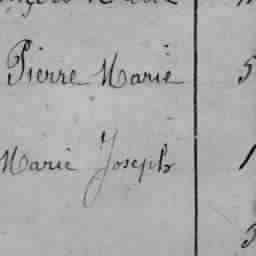 Pierre Marie 5
Marie Joseph 1
3